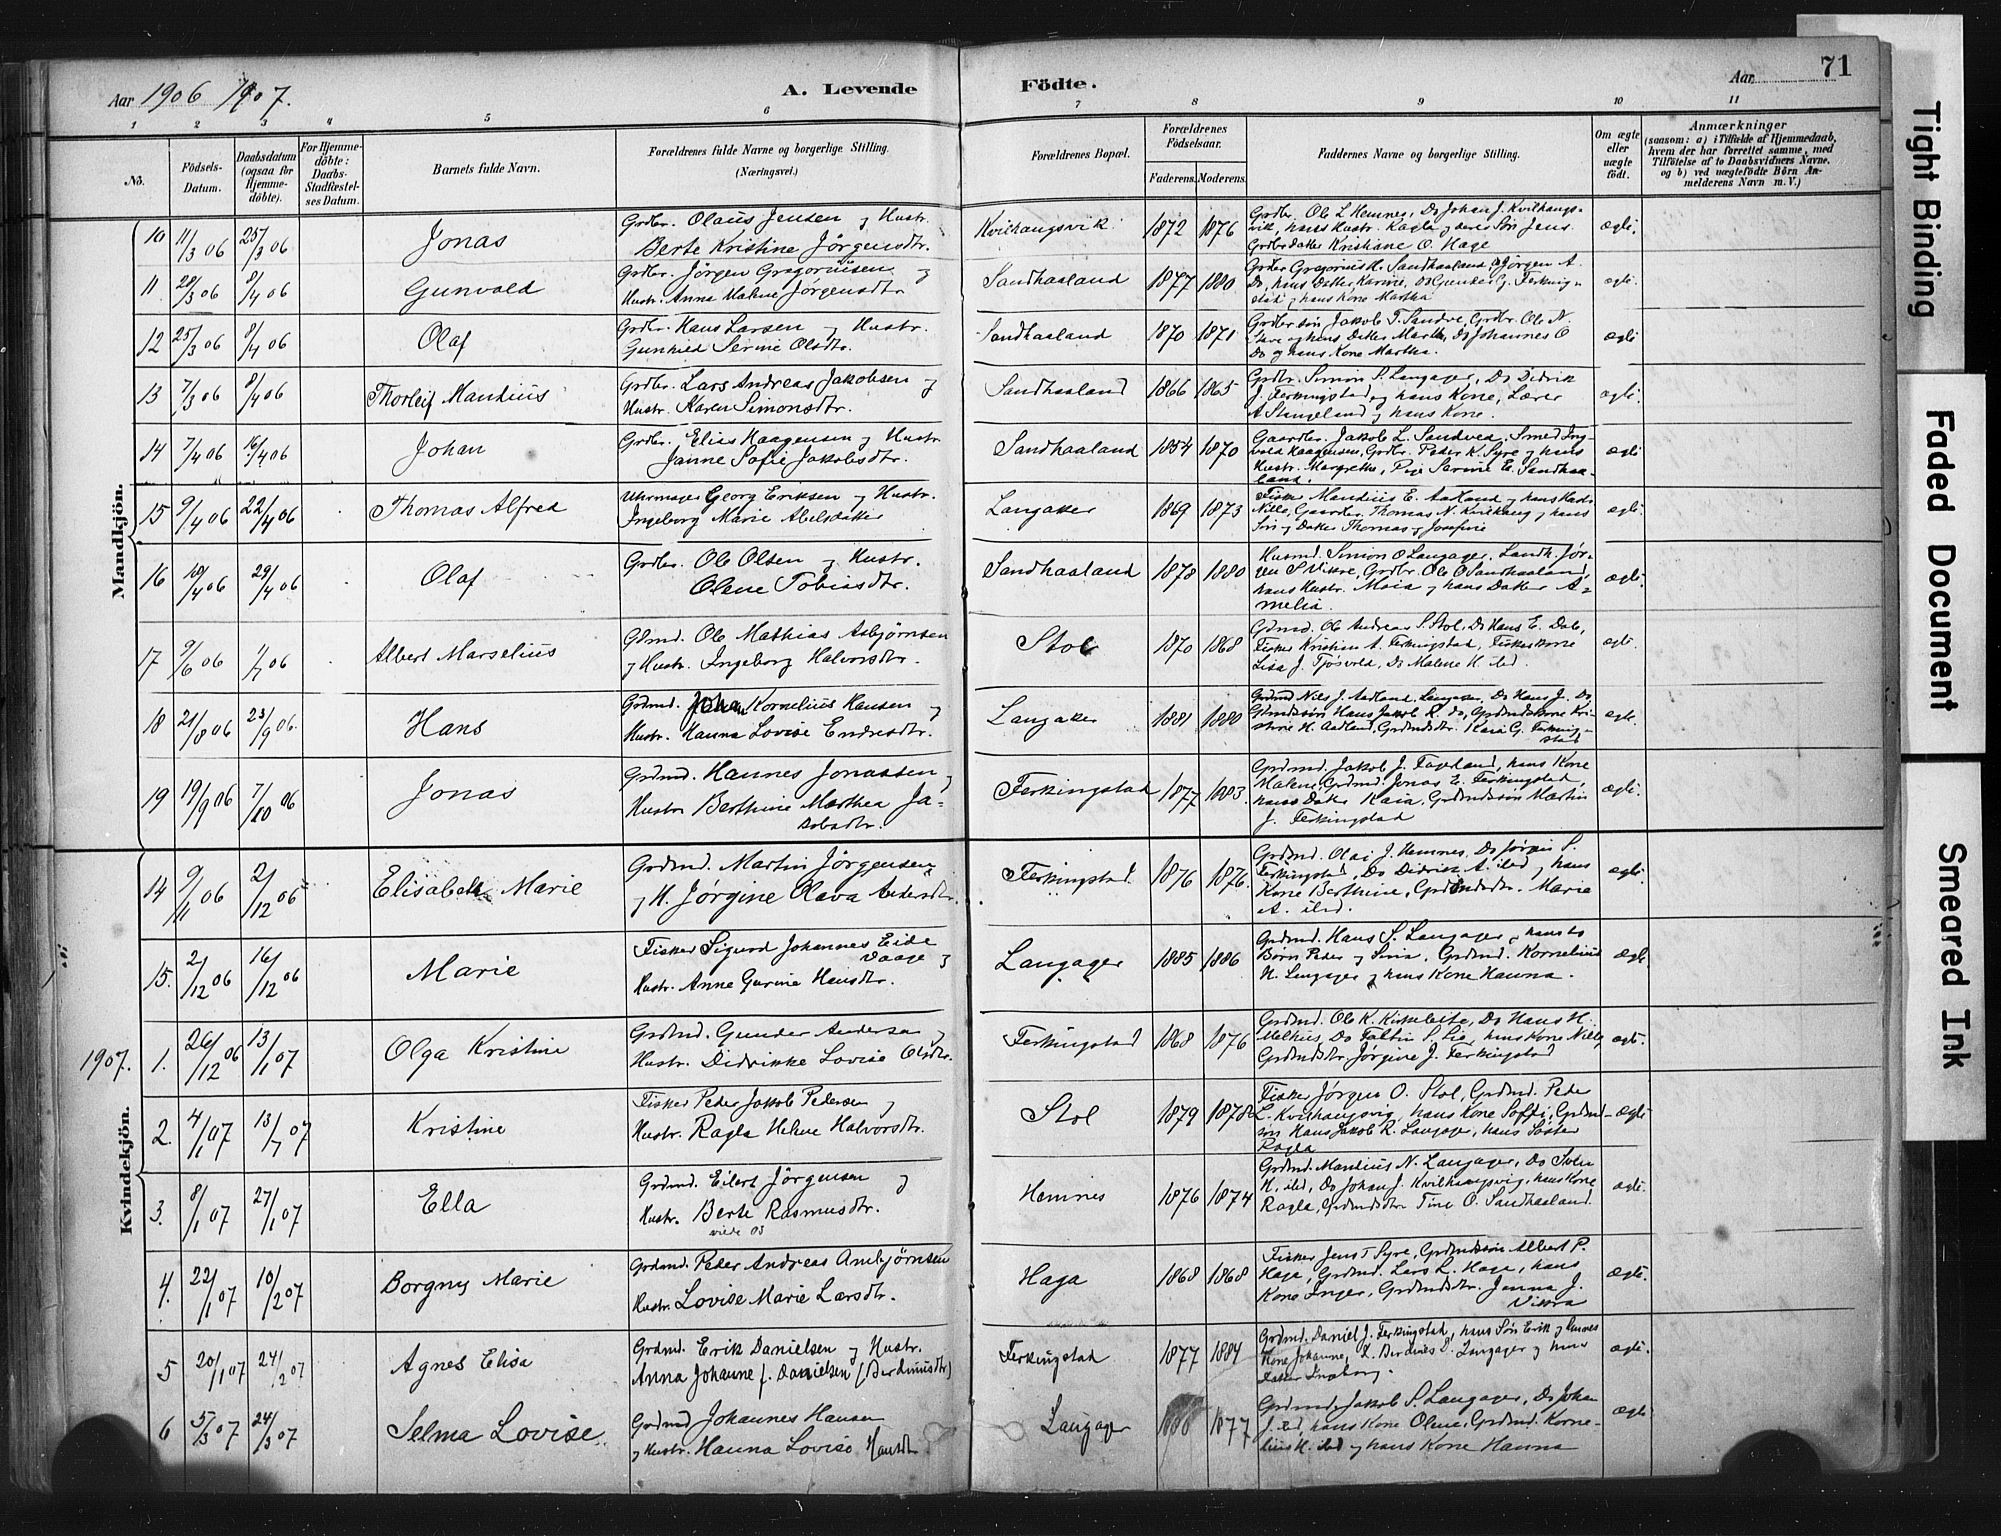 Aar 1906 1907.
A. Levende Födte.
Aar 71
1 2 3 4 5 6 7 8 9 10 11
No.
Födsels-Datum.
Daabsdatum (ogsaa for Hjemme-döbte).
For Hjemme-döbte: Daabs-Stadfestel-ses Datum.
Barnets fulde Navn.
Forældrenes fulde Navne og borgerlige Stilling. (Næringsvei.)
Forældrenes Bopæl.
Forældrenes Födselsaar.
Faderens. Moderens.
Faddernes Navne og borgerlige Stilling.
Om ægte eller uægte födt.
Anmærkninger
(saasom: a) i Tilfælde af Hjemmedaab,
hvem der har forrettet samme, med
Tilföielse af to Daabsvidners Navne,
og b) ved uægtefödte Börn An-
melderens Navn m. V.)
Mandkjön.
10 11/3 06 25/3 06 Jonas
Grdbr. Olaus Jensen og Hustr.
Berte Kristine Jörgensdtr.
Kvilhaugsvik 1872 1876
Grdbr. Ole L Hemnes, Do Johan J. Kvilhaugs-
vik, hans Hustr. Ragla og deres Sön Jens
Grdbrdatter Kristiane O. Hage
ægte.
11 20/3 06 8/4 06 Gunvald
Grdbr. Jörgen Gregoriusen og
Hustr. Anna Malene Jörgensdtr
Sandhaaland 1877 1880
ægte.
12 25/3 06 8/4 06 Olaf
Grdbr. Hans Larsen og Hustr.
Gunhild Serine Olsdtr.
Sandhaaland 1870 1871
Do og hans Kone Martha.
ægte
13 7/3 06 8/4 06 Thorleif Mandius
Grdbr. Lars Andreas Jakobsen og
Hustr. Karen Simonsdtr.
Sandhaaland 1866 1865
Grdbr. Simon P. Langager, Do Didrik
J. Ferkingstad og hans Kone, Lærer
A Stangeland og hans Kone.
ægte.
14 7/4 06 16/4 06 Johan
Grdbr. Elias Haagensen og Hustr
Janne Sofie Jakobsdtr.
Sandhaaland 1854 1870
Gaardbr. Jakob L. Sandved, Smed Ing-
vald Haagensen, Grdbr. Peder K. Syre og hans
Hustr. Margrethe, Pige Serine E. Sandhaa-
land.
ægte
15 9/4 06 22/4 06 Thomas Alfred
Uhrmager Georg Eriksen og Hustr.
Ingeborg Marie Abelsdatter
Langaker 1869 1873
Fisker Mandius E. Aadland og hans Hustr
Nille, Gaardbr. Thomas N. Kvilhaug og hans
Sön og Datter Thomas og Josefine
ægte.
16 10/4 06 29/4 06 Olaf
Grdbr. Ole Olsen og Hustr.
Olene Tobiasdtr.
Sandhaaland 1878 1880
Husmd. Simon O Langager, Landh. Jör-
gen S Vikre, Grdbr. Ole O Sandhaaland,
hans Hustr. Maia og hans Datter A-
melia.
ægte.
17 9/6 06 1/7 06 Albert Marselius
Gdmd. Ole Mathias Asbjörnsen
og Hustr. Ingeborg Halvorsdtr.
Stol 1870 1868
Gdmd. Ole Andreas S. Stol, Do Hans E. Dale,
Fisker Kristian A. Ferkingstad, Fiskerkone
Lisa J. Tjösvold, Do Malene H ibd.
ægte.
18 21/8 06 23/9 06. Hans
Grdmd. Johan Kornelius Hansen og
Hustr. Hanna Lovise Endresdtr.
Langaker 1881 1880
Grdmd Nils J. Aadland, Langager, Do Hans J. Do
Gdmdssön Hans Jakob R. do, Grdmdskone Kri-
stine H. Aadland, Grdmdsdtr. Kaia G. Ferking-
stad
ægte.
19 19/9 06 7/10 06 Jonas
Grdmd. Hannes Jonassen og
Hustr Berthine Marthea Ja-
kobsdtr.
Ferkingstad 1877 1883.
Grdmd. Jakob J. Fagerland, hans Kone
Malene, Grdmd. Jonas E. Ferkingstad,
hans Datter Kaia, Grdmdssön Martin
J. Ferkingstad
ægte.
Kvindekjön.
14 9/11 06 2/12 06 Elisabeth Marie
Grdmd. Martin Jörgensen
og H. Jörgine Olava Andersdtr.
Ferkingstad. 1876 1876.
Grdmd. Olai J. Hemnes, Do Jörgen P.
Ferkingstad, Do Didrik A. ibd og hans
Kone Berthine, Grdmdsdtr. Marie
A. ibd.
ægte
15. 2/12 06 16/12 06 Marie
Fisker Sigurd Johannes Eide
Vaage og
Hustr. Anne Gurine Hansdtr.
Langager 1885 1886
Grdmd. Hans S. Langager, hans to
Börn Peder og Sina, Grdmd. Kornelius
H. Langager og hans Kone Hanna.
ægte
1907.
1. 26/12 06 13/1 07 Olga Kristine
Grdmd. Gunder Andersen og
Hustr. Didrikke Lovise Olsdtr.
Ferkingstad 1868 1876
Grdmd. Ole K. Kirkeleite, Do Hans H.
Melhus, Do Faltin S. Lie, hans Kone Nille,
Grdmdsdtr. Jörgine J. Ferkingstad
ægte.
2. 4/1 07 13/1 07 Kristine
Fisker Peder Jakob Pedersen og
Hustr. Ragla Helene Halvorsdtr.
Stol 1879 1878
Fisker Jörgen O. Stol, Grdmd. Peder
L. Kvilhaugsvig, hans Kone Soffi, Grdmd-
sön Hans Jakob R. Langager, hans Söster
Ragla
ægte
3. 8/1 07 27/1 07 Ella
Grdmd. Eilert Jörgensen og
Hustr. Berte Rasmusdtr.
viede 03
Hemnes 1876 1874
Grdmd. Mandius N. Langager, Do Sven
H, ibd, Do Johan J. Kvilhaugsvig, hans Kone
Ragla, Grdmdsdtr Tine O. Sandhaaland.
ægte.
4. 22/1 07 10/2 07 Borgny Marie
Grdmd. Peder Andreas Ambjörnsen
Hustr. Lovise Marie Larsdtr.
Haga 1868 1868
Fisker Jens T Syre, Grdmdssön Albert P.
Hage, Grdmd. Lars L. Hage, hans
Kone Inger, Grdmdsdtr. Janna J.
Vikra
ægte.
5 20/1 07 24/2 07 Agnes Elisa
Grdmd. Erik Danielsen og Hustr.
Anna Johanne f. Danielsen (Berdinusdtr)
Ferkingstad 1877 1884
Grdmd. Daniel J. Ferkingstad, hans Sön Erik og dennes
Kone Johanne, L. Berdines O. Langager og hans
Datter Ingeborg.
ægte.
6 5/3 07 24/3 07 Selma Lovise.
Grdmd Johannes Hansen
og Hustr. Hanna Lovise Hansdtr
Langager 1880 1877
Grdmd. Jakob S. Langager, Do Johan
J. ibd, hans Kone Olene, Grdmd. Korne-
lius H. ibd og hans Kone Hanna
ægte
Tight Binding
Faded Document
Smeared Ink